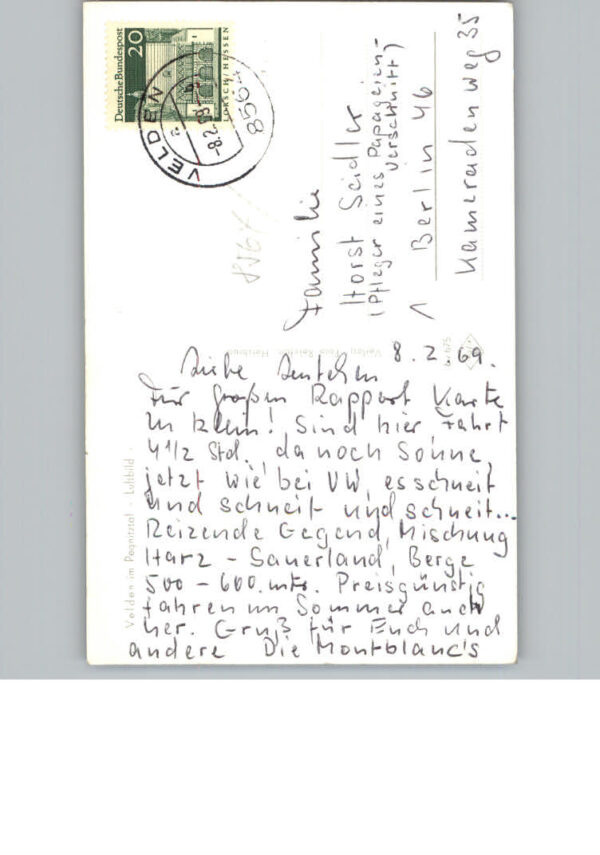 Deutsche Bundespost
20
LORSCH/HESSEN
VELDEN
a
8.2.69
8564
Familie
Horst Seidler
(Pfleger eines Papageien-
verschnitt)
1 Berlin 46
Kameradenweg 35
8.2.69.
Liebe
Für großen Rapport Karte
zu klein! Sind hier Fahrt
4 1/2 Std. da noch Sonne,
jetzt wie bei VW, es schneit
und schneit und schneit...
Reizende Gegend, Mischung
Harz - Sauerland, Berge
500 - 600 mtr. Preisgünstig
fahren im Sommer auch
her. Gruß für Euch und
andere Die Montblanc's
Velden im Pegnitztal - Luftbild -